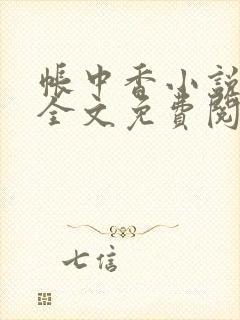 帳中香小說
全文免費閱
七信